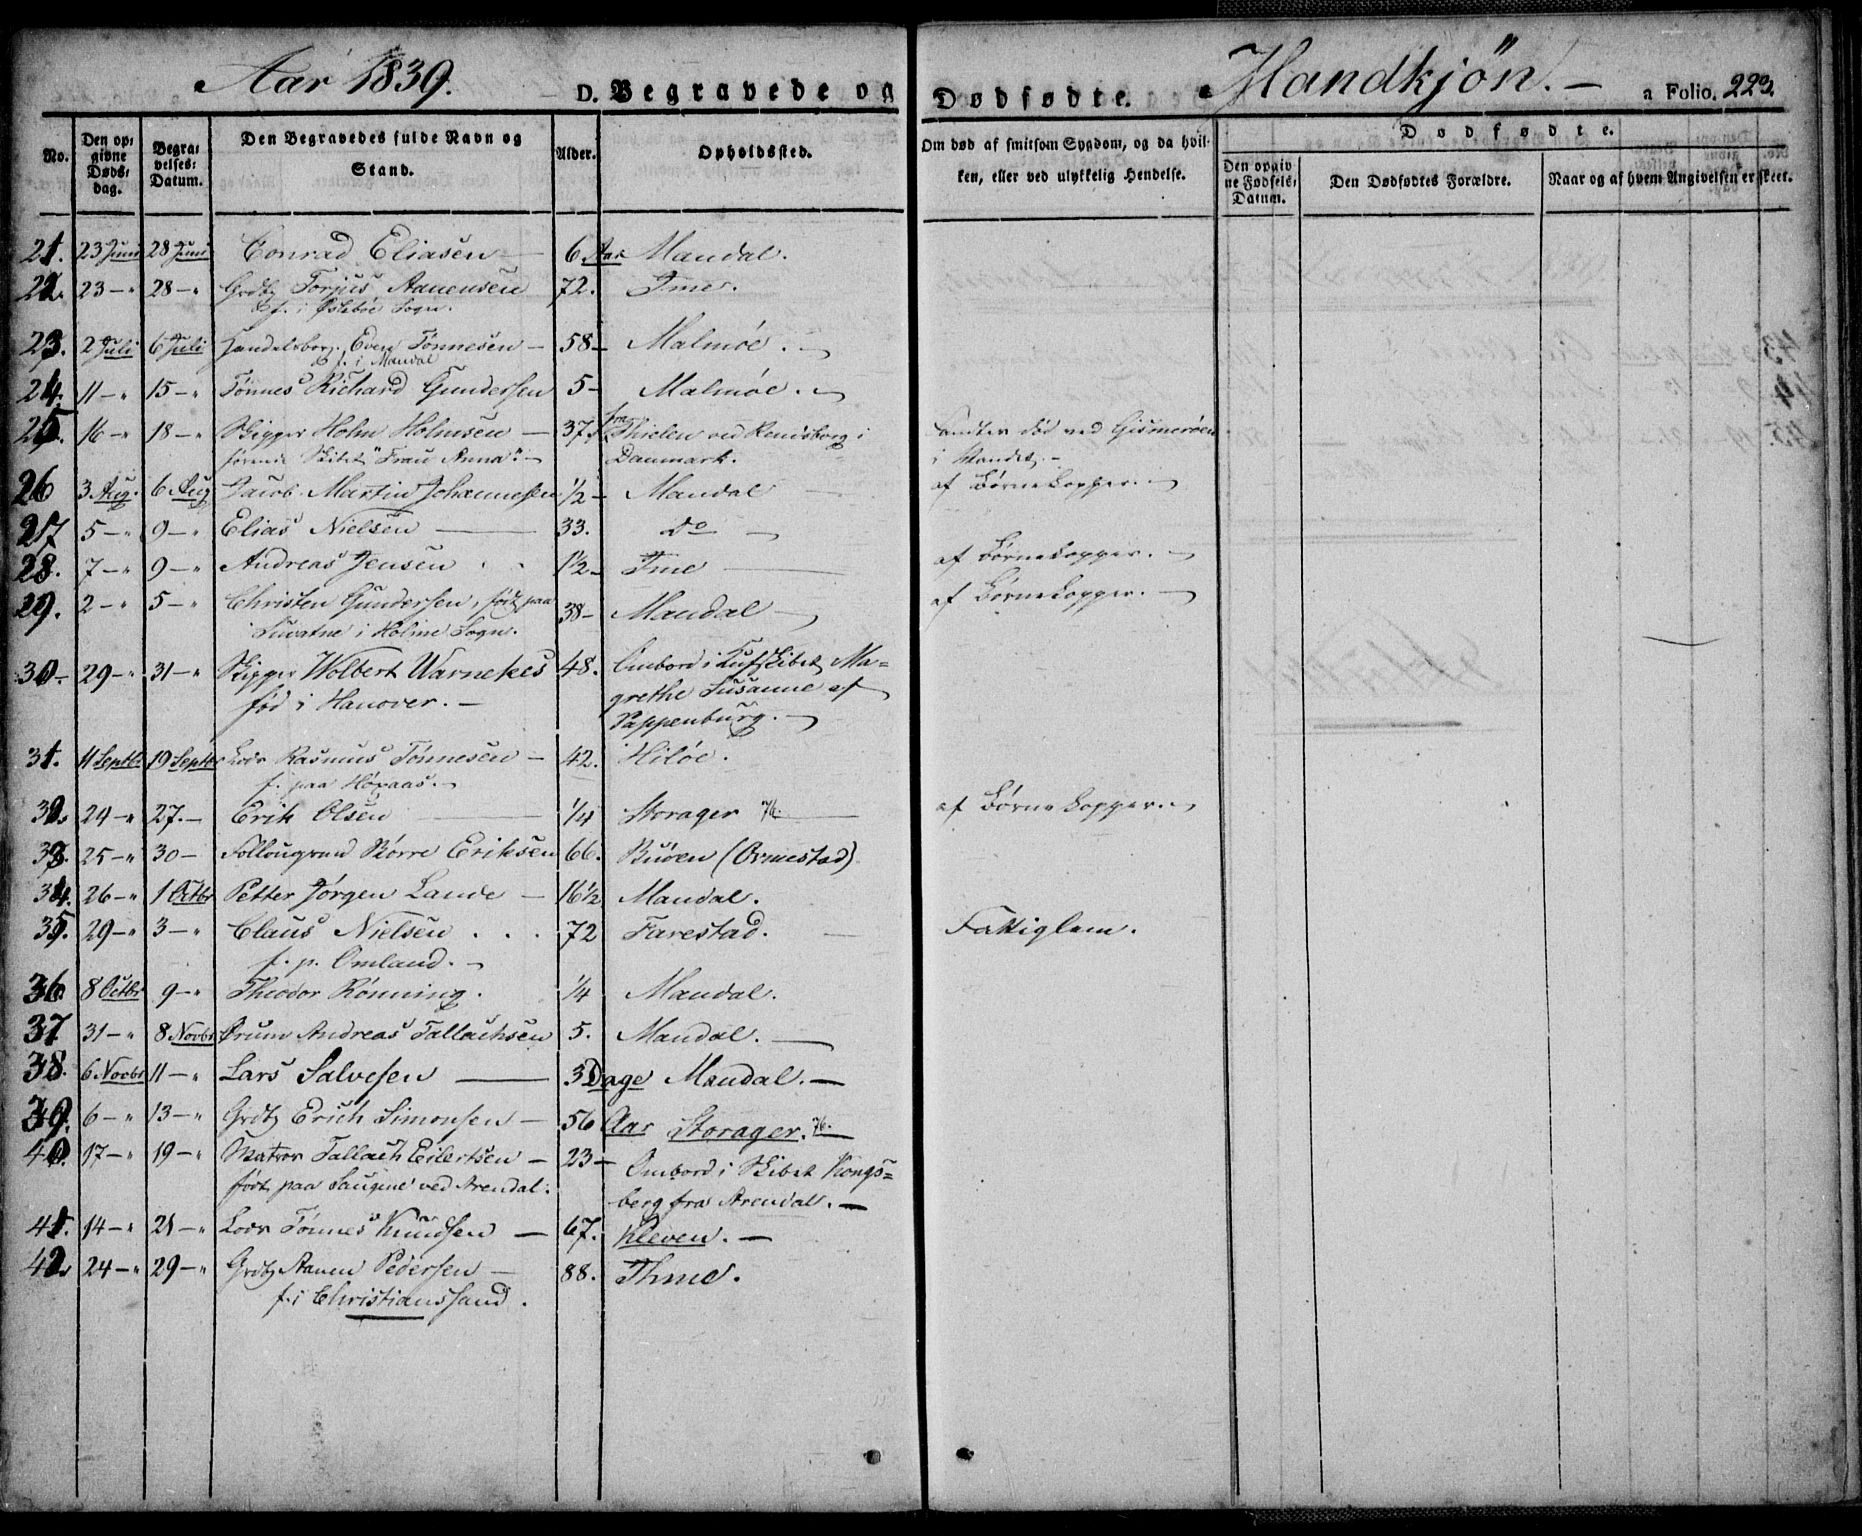 Aar 1839.
D. Begravede og Dødfødte.
Mandkjøn. —
a Folio. 223.
No.
Den opgivne Dødsdag.
Begravelses-Datum.
Den Begravedes fulde Navn og Stand.
Alder.
Opholdssted.
Om død af smitsom Sygdom, og da hvilken, eller ved ulykkelig Hendelse.
Dødfødte.
Den opgivne Fødsels-Datum.
Den Dødfødtes Forældre.
Naar og af hvem Angivelsen er skeet.
21. 23 Juni 28 Juni Conrad Eliasen — 6 Aar Mandal.
22. 23 — " 28 — " Grdbr Torjus Aanensen 72. Ime.
f. i Øslebøe Sogn.
23. 2 Juli 6 Juli Handelsborg. Even Tønnesen — 58 — Malmøe. —
f. i Mandal
24. 11 — " 15 — " Tønnes Richard Gundersen 5 — Malmøe. —
25. 16 — " 18 — " Skipper Hohn Holmsen — 37. fra Thielen ved Rendsborg i fandtes død ved Gismerøen
førende Skibet "Frau Anna". — Danmark. i Vandet. —
26 3 Aug. 6 Aug Jacob Martin Johannesen ½ — Mandal af Børnekopper. —
27 5 — " 9 — " Elias Nielsen — 33. do —
28. 7 — " 9 — " Andreas Jensen . . 1½ — Ime — af Børnekopper. —
29. 2 — " 5 — " Christen Gundersen, født paa 38 — Mandal — af Børnekopper. —
i Holme Sogn.
30 — 29 — " 31 — " Skipper Wolbert Warnekes 48. Ombord i Kufskibet Ma=
fød i Hanover. — grethe Susanne af
Pappenburg. —
31. 11 Septbr 19 Septbr Lods Rasmus Tønnesen — 42. Hiløe.
f. paa Høvaas. —
32. 24 — " 27. — Erik Olsen — ¼ Storager 76. — af Børnekopper. —
33. 25 — " 30 — Børre Eriksen 66. Buøen (Ormestad)
34. 26 — " 1 Octbr Petter Jørgen Lande — 16½ Mandal.
35. 29 — " 3 — " Claus Nielsen . . . 72 Farestad. — Fattiglem.
f. p. Omland. —
36. 8 Octbr 9 — " Theodor Rønning. ¼ Mandal.
37 31 — " 8 Novbr Ørum Andreas Tallachsen 5. Mandal. —
38. 6 Novbr 11 — " Lars Salvesen — 3 Dage Mandal. —
39. 6 — " 13 — " Grdbr Erich Simonsen — 56 Aar Storager. 76. —
40. 17 — " 19 — " Matros Tallach Eilertsen — 23 — Ombord i Skibet Kongs=
født paa Saugene ved Arendal. berg fra Arendal. —
41. 14 — " 21 — " Lods Tønnes Knudsen — 67. Kleven. —
42. 24 — " 29 — " Grdbr Aanen Pedersen — 88. Ihme.
f. i Christianssand.